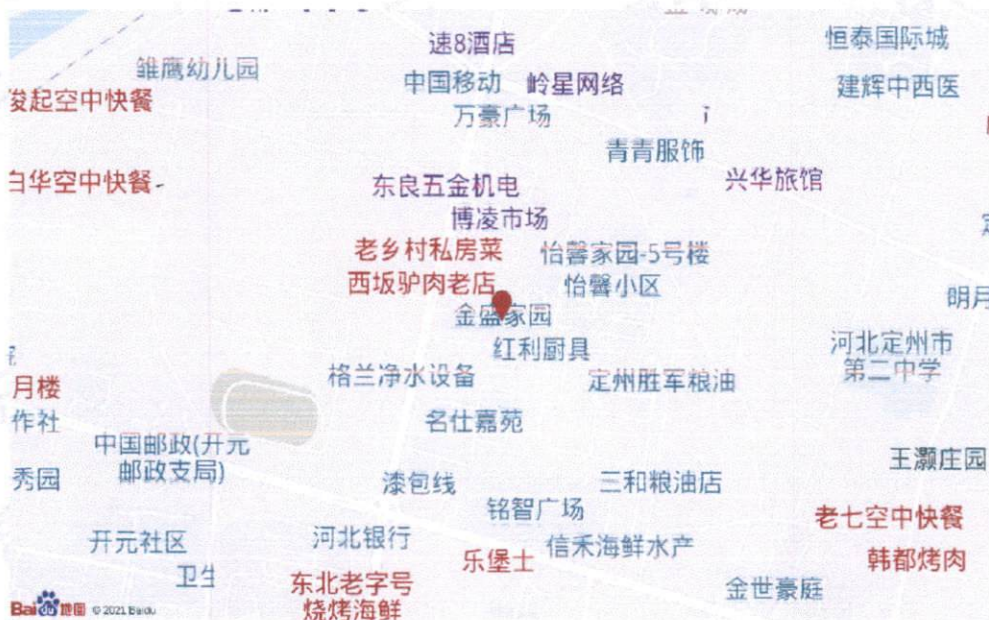 速8酒店
恒泰国际城
雏鹰幼儿园
中国移动
岭星网络
建辉中西医
发起空中快餐
万豪广场
青青服饰
白华空中快餐
东良五金机电
兴华旅馆
博凌市场
老乡村私房菜
怡馨家园-5号楼
西坂驴肉老店
怡馨小区
明月
金盛家园
红利厨具
河北定州市
第二中学
格兰净水设备
定州胜军粮油
月楼
作社
名仕嘉苑
中国邮政(开元
邮政支局)
王灏庄园
秀园
漆包线
三和粮油店
铭智广场
老七空中快餐
开元社区
河北银行
信禾海鲜水产
乐堡士
韩都烤肉
卫生
东北老字号
烧烤海鲜
金世豪庭
Bai 地图 © 2021 Baidu